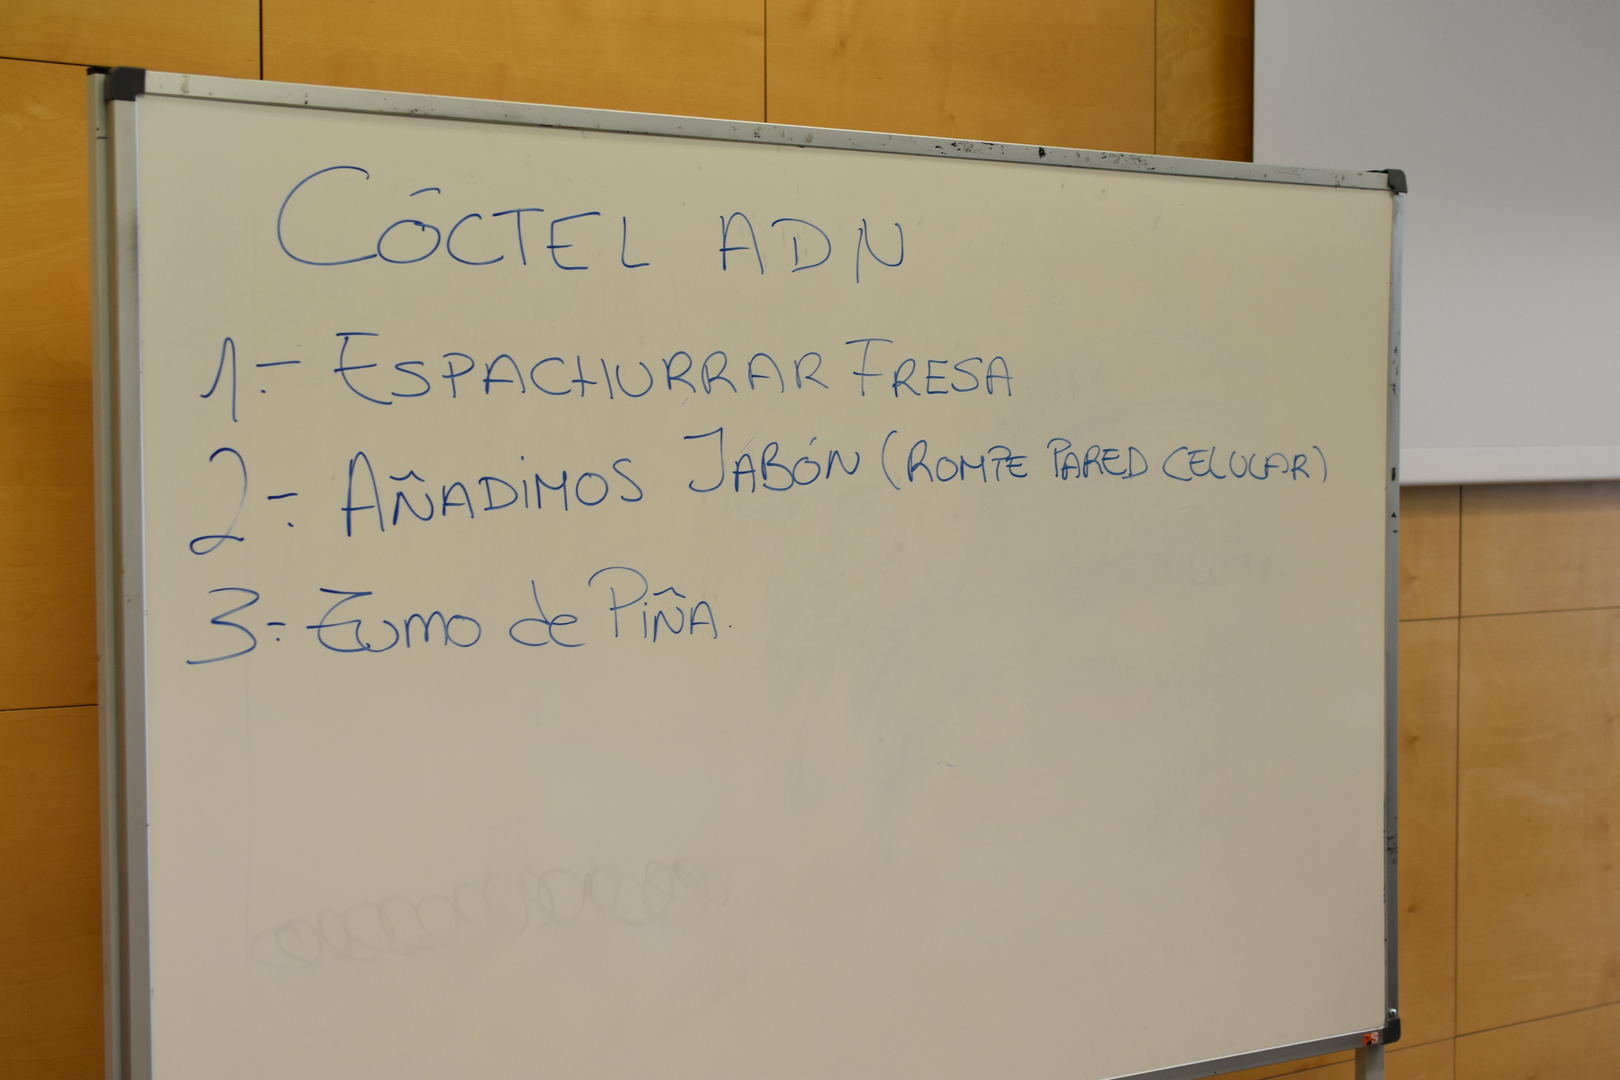 CÓCTEL ADN
1.- ESPACHURRAR FRESA
2.- AÑADIMOS JABÓN (ROMPE PARED CELULAR)
3.- Zumo de PIÑA.